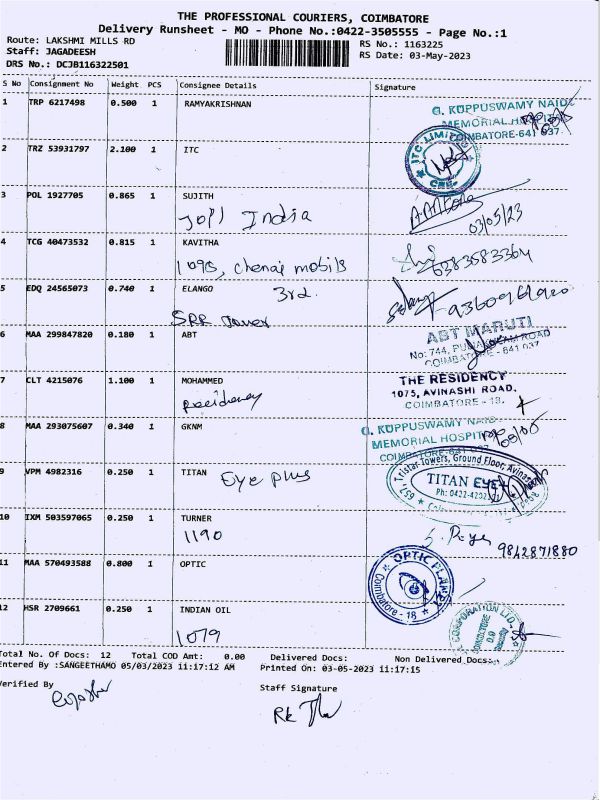 THE PROFESSIONAL COURIERS, COIMBATORE
Delivery Runsheet - MO - Phone No.:0422-3505555 - Page No.:1
Route: LAKSHMI MILLS RD
Staff: JAGADEESH
DRS No.: DCJB116322501
RS No.: 1163225
RS Date: 03-May-2023
S No Consignment No Weight PCS Consignee Details Signature
1 TRP 6217498 0.500 1 RAMYAKRISHNAN
G. KUPPUSWAMY NAIDU
MEMORIAL HOSPITAL
COIMBATORE-641 037
2 TRZ 53931797 2.100 1 ITC
ITC LIMITED
CBE
3 POL 1927705 0.865 1 SUJITH
Jopl India
03/05/23
4 TCG 40473532 0.815 1 KAVITHA
1098, Chenai mobils
6383583364
5 EDQ 24565073 0.740 1 ELANGO
3rd.
SRR Tower
6 MAA 299847820 0.180 1 ABT
ABT MARUTI
No: 744, PULIAKULAM ROAD
COIMBATORE - 641 037
7 CLT 4215076 1.100 1 MOHAMMED
Residency
THE RESIDENCY
1075, AVINASHI ROAD,
COIMBATORE - 18.
8 MAA 293075607 0.340 1 GKNM
G. KUPPUSWAMY NAIDU
MEMORIAL HOSPITAL
COIMBATORE-641 037
9 VPM 4982316 0.250 1 TITAN
Eye plus
657, Tristar Towers, Ground Floor, Avinashi Road
TITAN EYE+
Ph: 0422-4202301
10 IXM 503597065 0.250 1 TURNER
1190
9842871880
11 MAA 570493588 0.800 1 OPTIC
OPTIC PLANET
Coimbatore - 18
12 HSR 2709661 0.250 1 INDIAN OIL
1079
CORPORATION LTD.
COIMBATORE
D.O
Total No. Of Docs: 12 Total COD Amt: 0.00 Delivered Docs: Non Delivered Docs:
Entered By :SANGEETHAMO 05/03/2023 11:17:12 AM Printed On: 03-05-2023 11:17:15
Verified By
Staff Signature